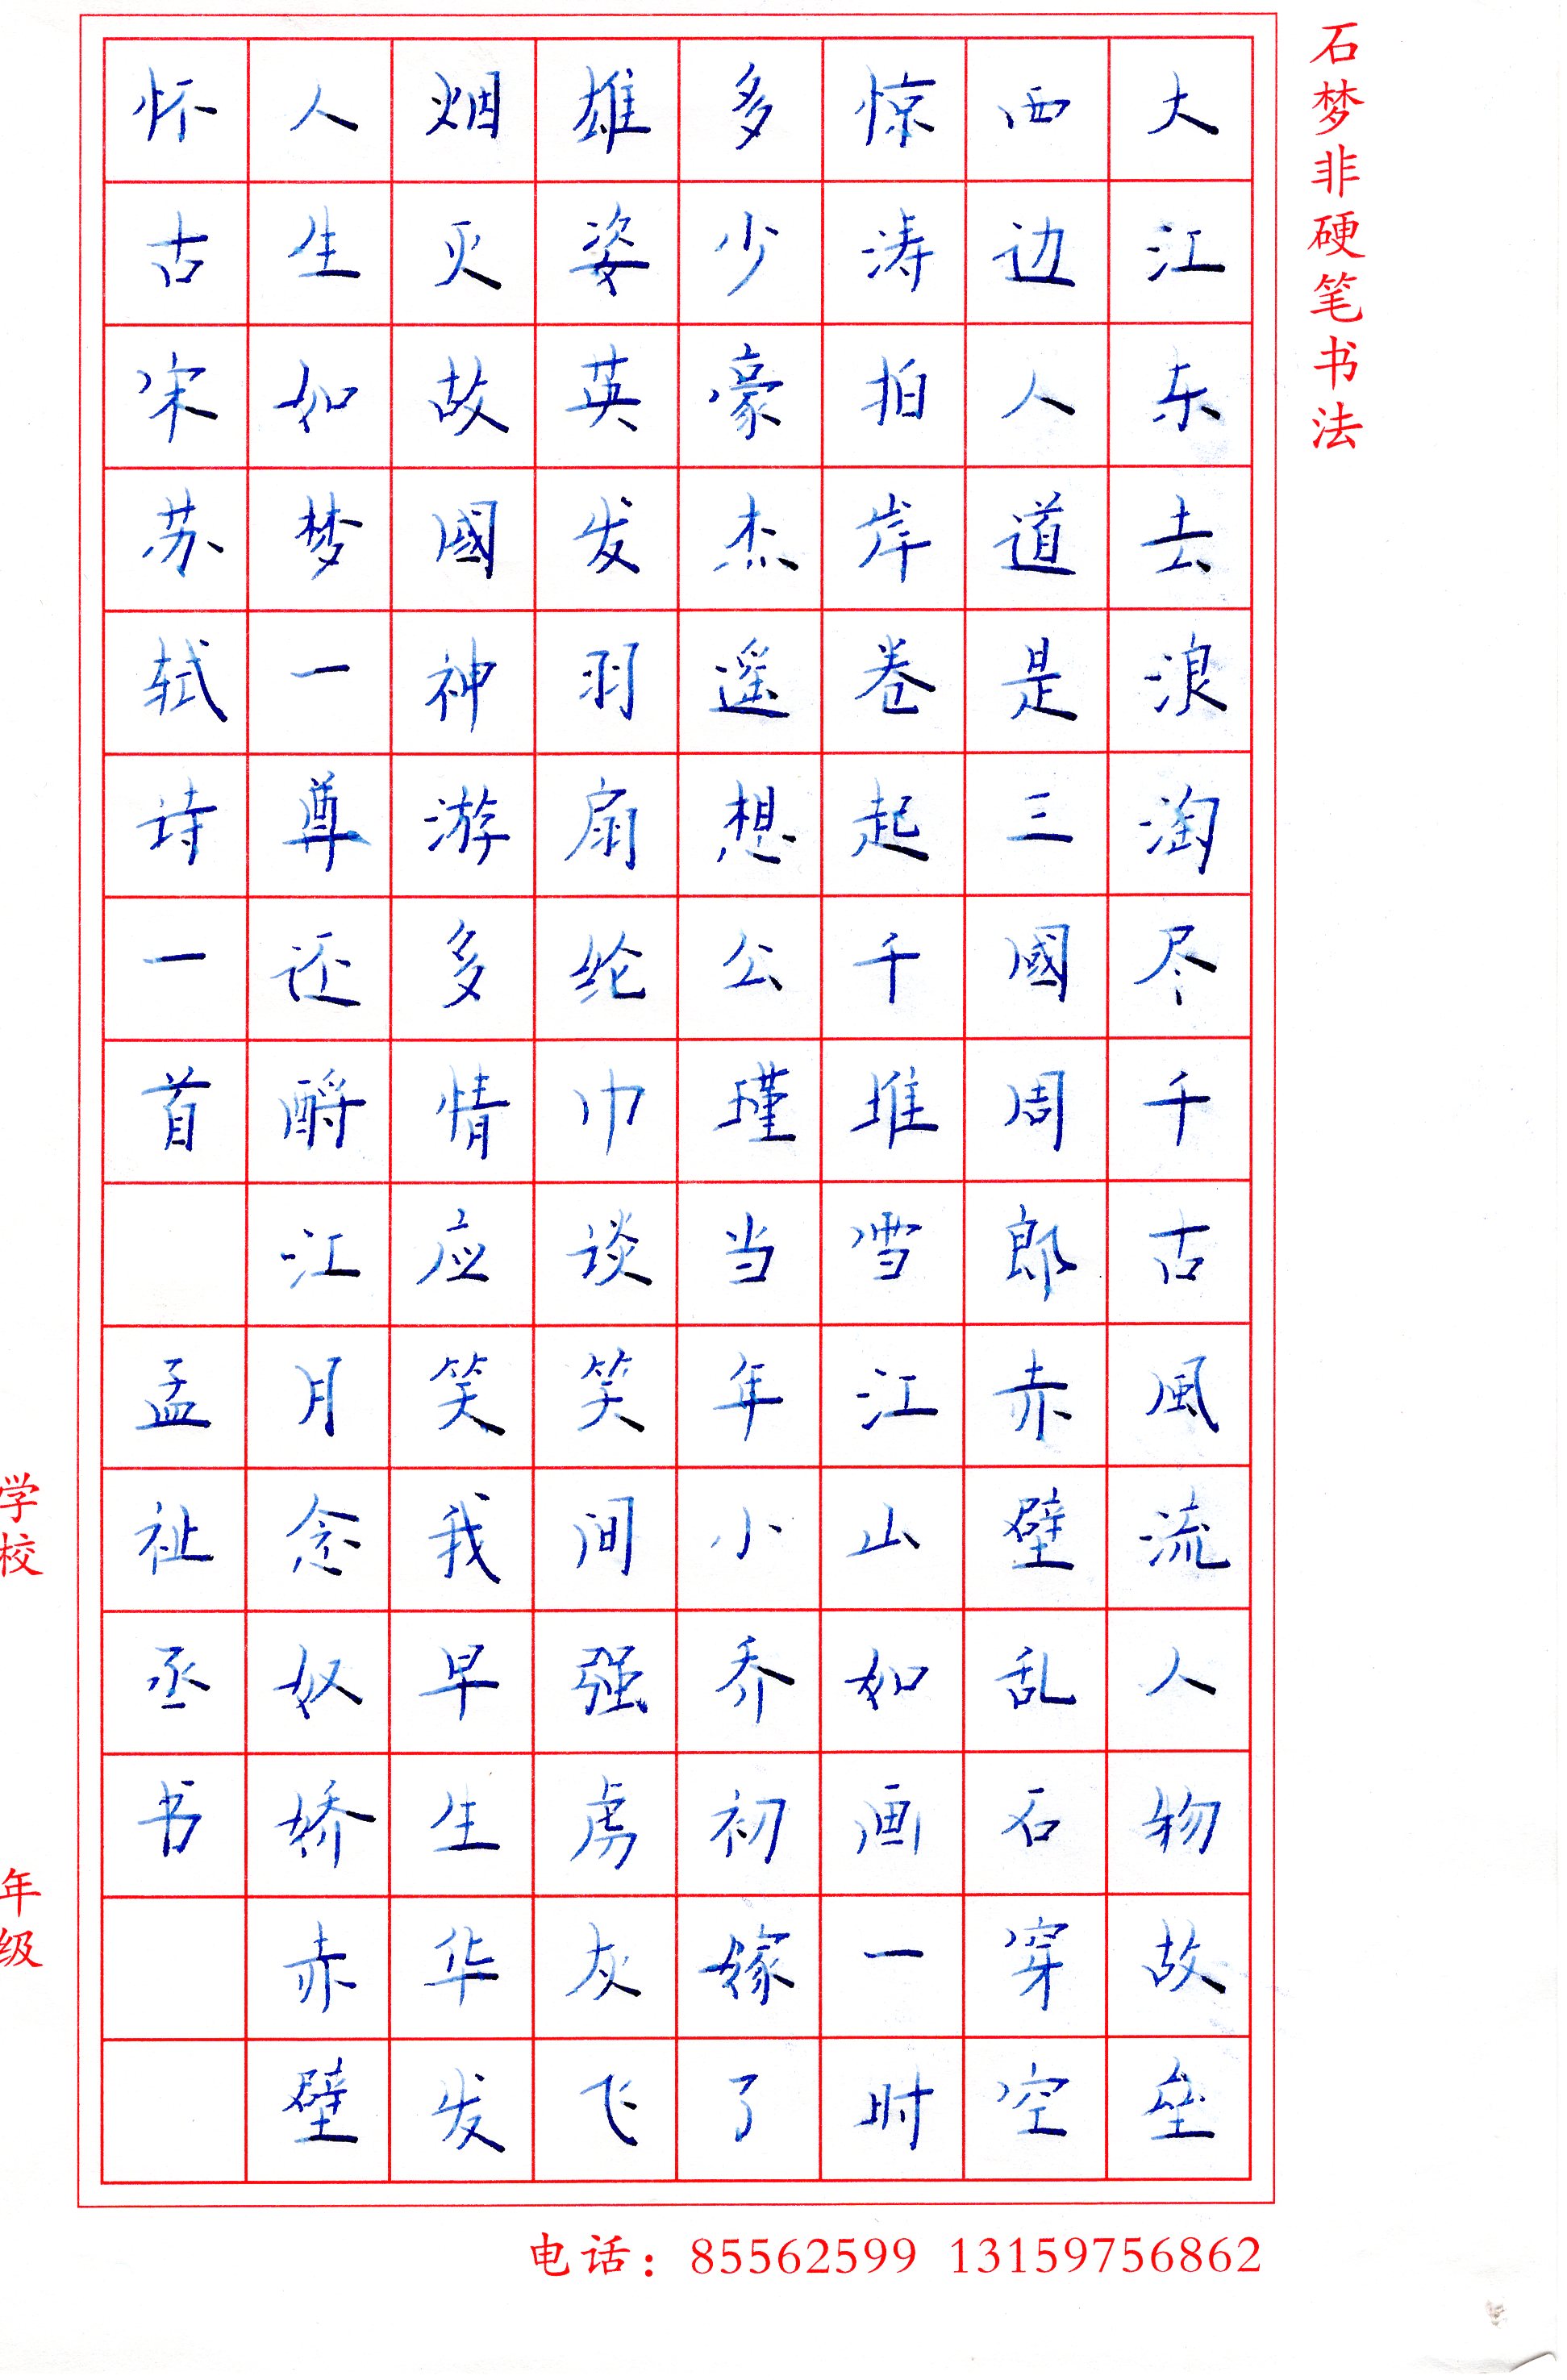 石梦非硬笔书法
大江东去浪淘尽千古風流人物故垒
西边人道是三國周郎赤壁乱石穿空
惊涛拍岸卷起千堆雪江山如画一时
多少豪杰遥想公瑾当年小乔初嫁了
雄姿英发羽扇纶巾谈笑间强虏灰飞
烟灭故國神游多情应笑我早生华发
人生如梦一尊还酹江月念奴娇赤壁
怀古宋苏轼诗一首 孟祉丞书
学校 年级
电话：85562599 13159756862